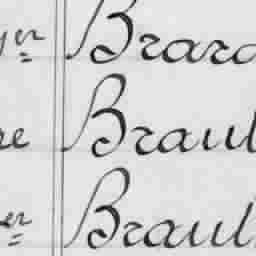 yer Brard
re Braul
er Braul